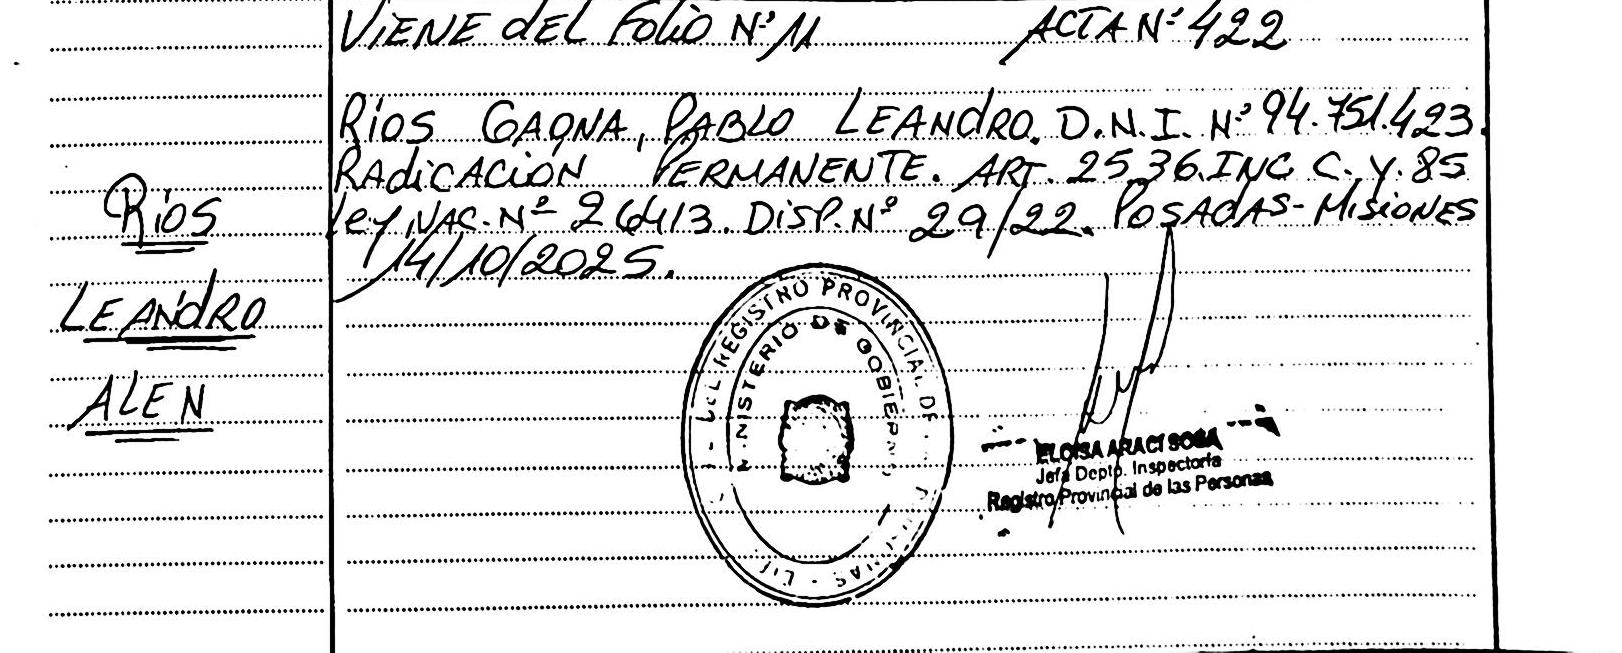 VIENE dEL Folio Nº 11 ACTA Nº 422
Ríos GAONA, PABLO LEANdRO. D.N.I. Nº 94.751.423.
RAdiCACiÓN PERMANENTE. ART. 2536.INC C. Y. 85
Ley NAC. Nº 26413. DiSP. Nº 29/22. POSADAS-MiSiONES
14/10/2025.
Ríos
LEANdRO
ALEN
DEL REGISTRO PROVINCIAL DE
MINISTERIO DE GOBIERNO
ELOISA ARACI SOSA
Jefa Depto. Inspectoría
Registro Provincial de las Personas